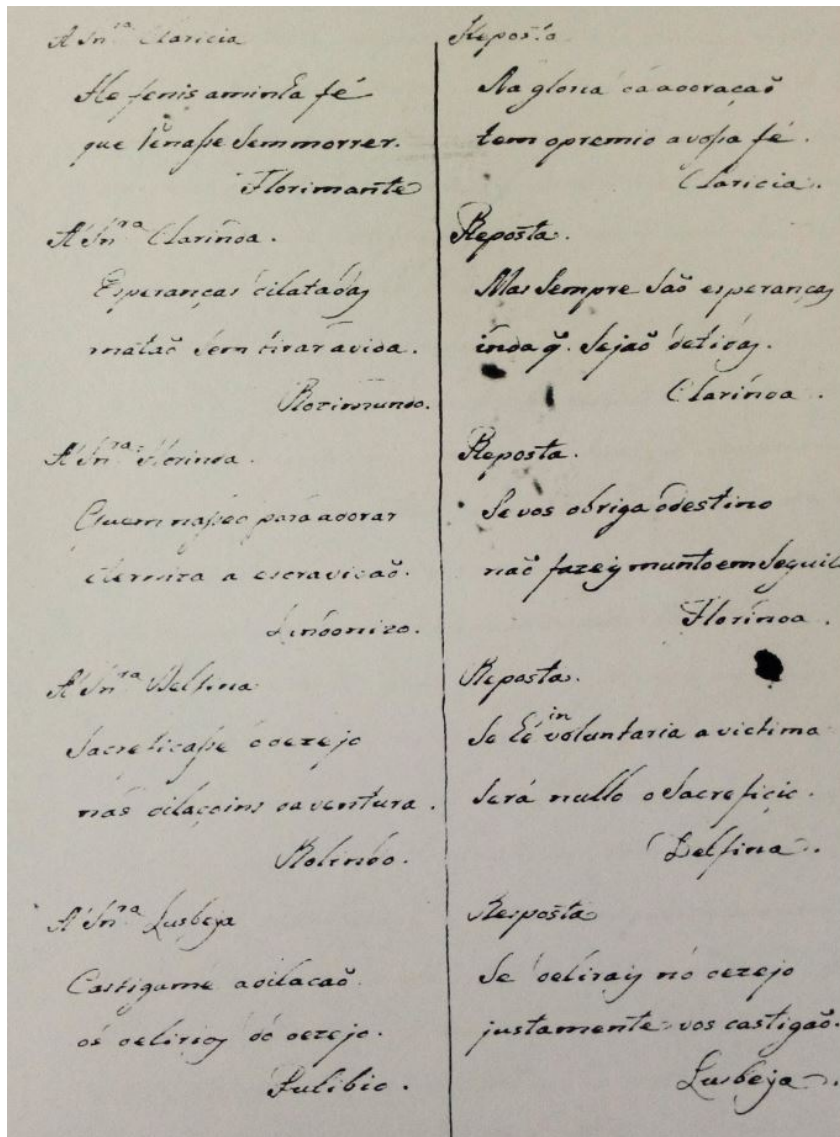 A Snr.ª Claricia
He fenis aminha fé
que renasse Sem morrer.
Florimante
A' Snr.ª Clarinda.
Esperanças dilatadas
mataõ Sem tirar avida.
Rozimundo.
A' Snr.ª Florinda.
Quem nasseo para adorar
eterniza a escravidaõ.
Lindonizo.
A' Snr.ª Delfina
Sacreficasse odezejo
nas dilaçoins daventura.
Rolindo.
A' Snr.ª Lusbeja
Castigame adilacaõ
os delirios do dezejo.
Reposta
Na gloria da adoracaõ
tem opremio avossa fé.
Claricia.
Reposta.
Mas Sempre Saõ esperanças
inda q. Sejaõ detidas.
Clarinda.
Reposta.
Se vos obriga odestino
naõ fazeis munto em Seguil
Florinda.
Reposta.
Se hé involuntaria a victima
Será nullo o Sacreficio.
Delfina.
Resposta
Se delirais no dezejo
justamente vos castigaõ.
Lusbeja.